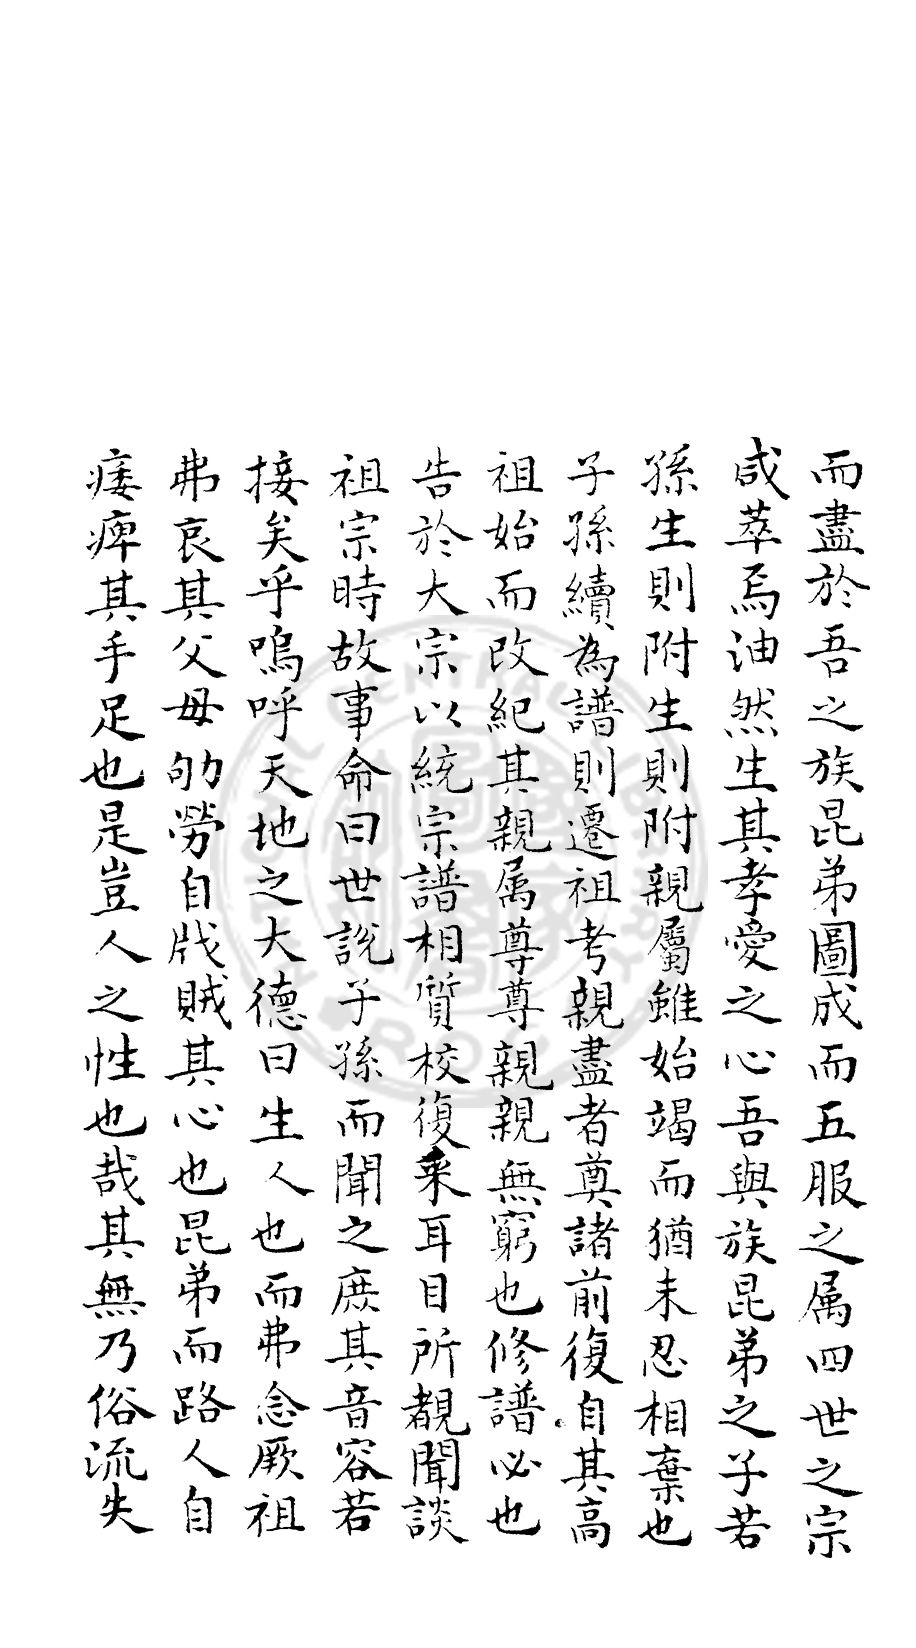 而盡於吾之族昆弟圖成而五服之属四世之宗
咸萃焉油然生其孝愛之心吾與族昆弟之子若
孫生則附生則附親屬雖始竭而猶未忍相棄也
子孫續為譜則遷祖考親盡者奠諸前復自其高
祖始而改紀其親属尊尊親親無窮也修譜必也
告於大宗以統宗譜相質校復采耳目所覩聞談
祖宗時故事命曰世說子孫而聞之庶其音容若
接矣乎嗚呼天地之大德曰生人也而弗念厥祖
弗哀其父母劬勞自戕賊其心也昆弟而路人自
痿痺其手足也是豈人之性也哉其無乃俗流失